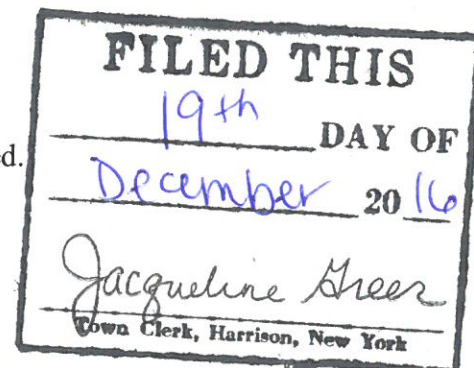 FILED THIS
19th DAY OF
ed.
December 20 16
Jacqueline Greer
Town Clerk, Harrison, New York